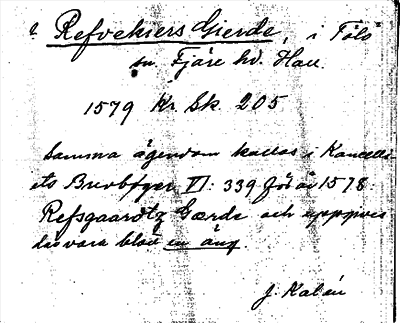 ? Refvekiers Gierde, i Tölö
sn. Fjäre hd. Hall.
1579 Kr. Sk 205
Samma ägendom kallas i Kancelli-
ets Brevbøger VI: 339 för år 1578:
Refsgaardtz Gærde och uppgives
das vara blott en äng.
J. Kalén